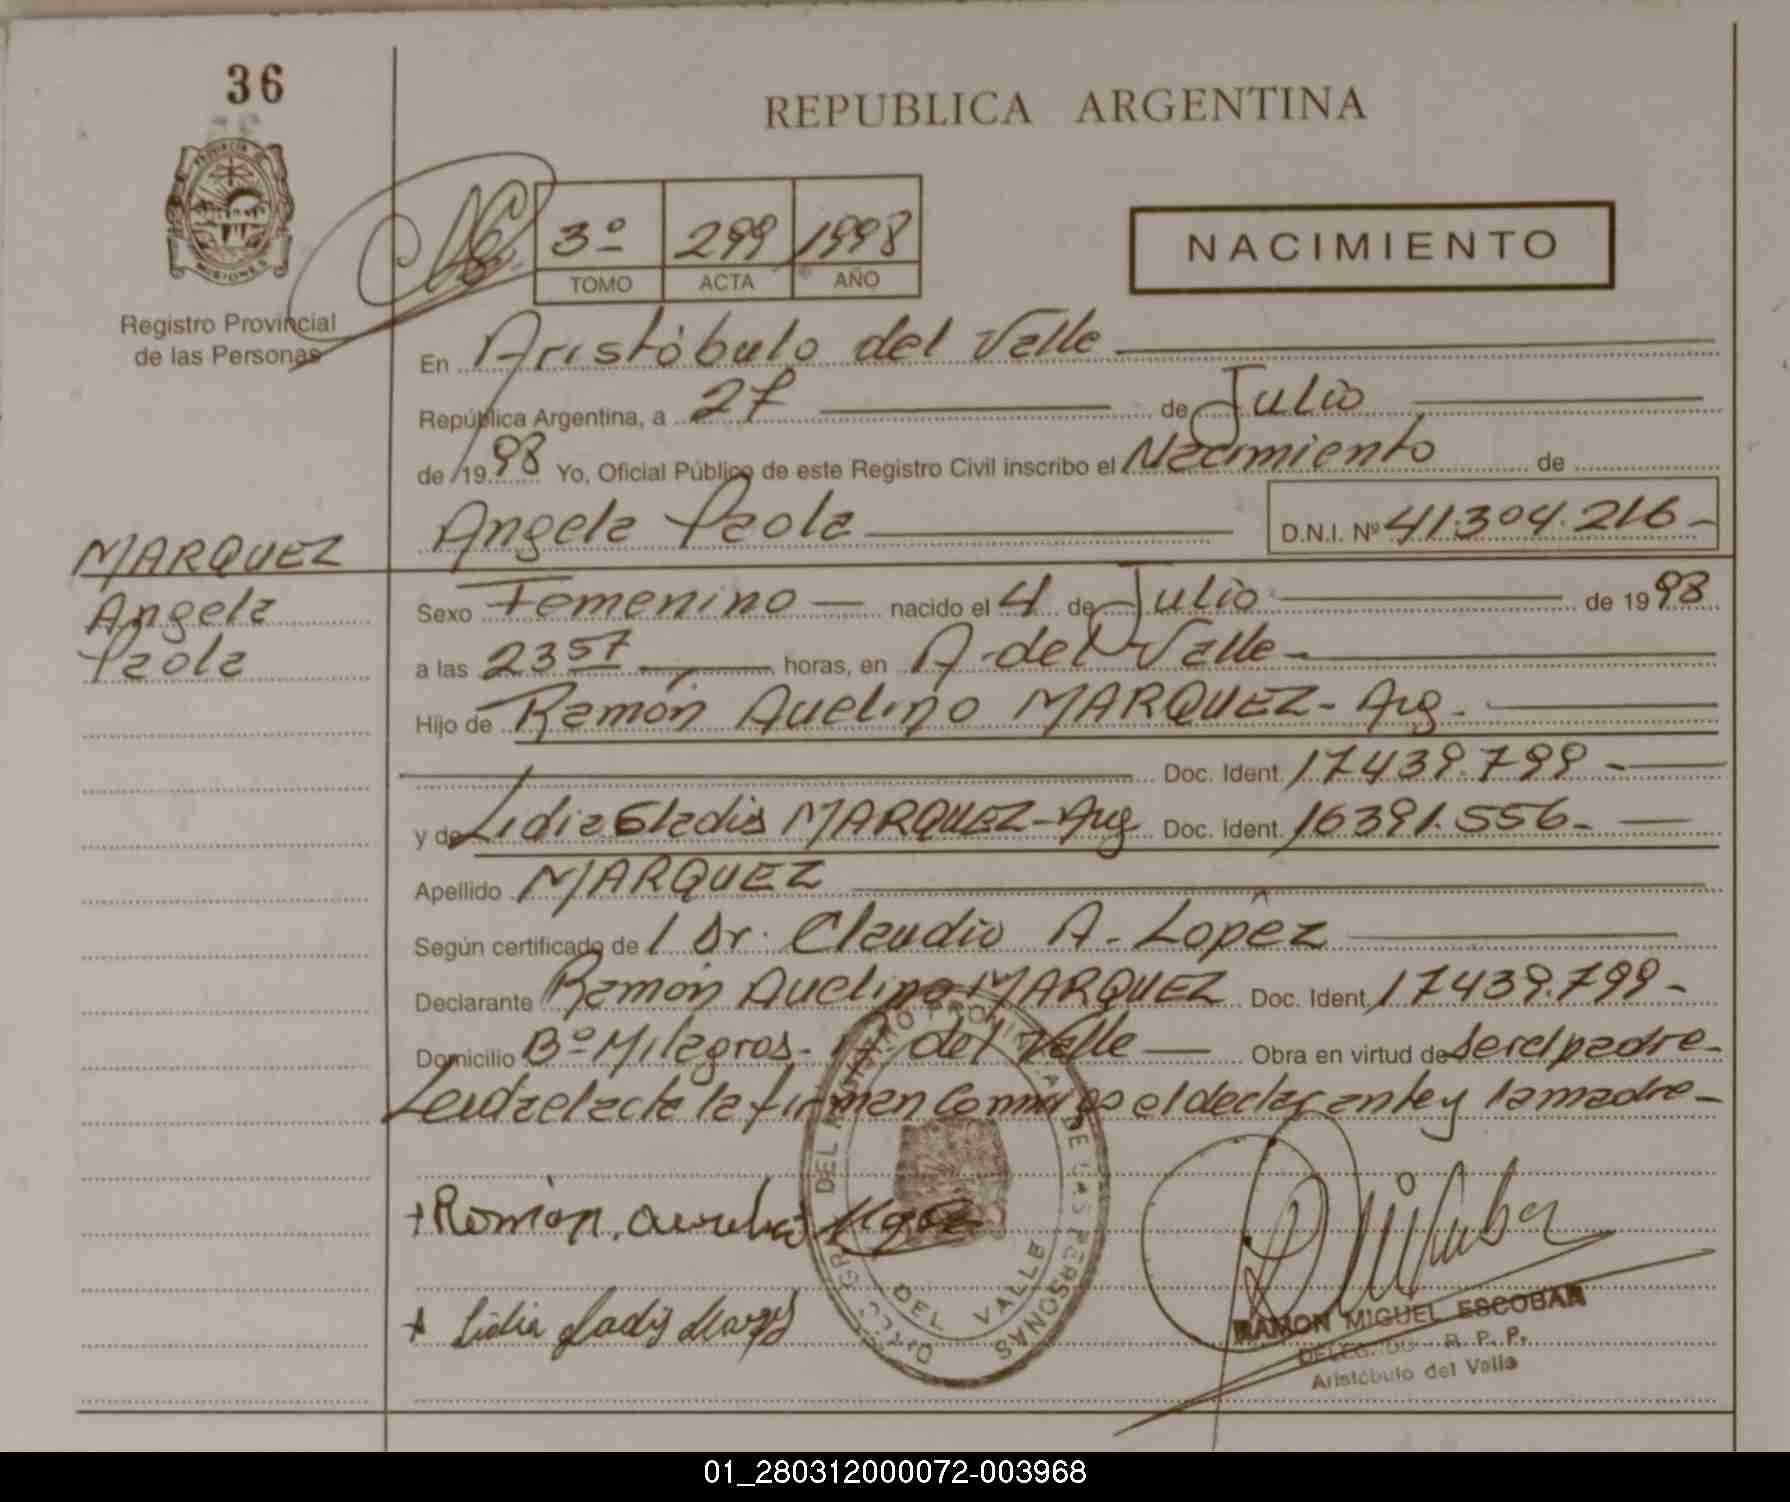 36
REPUBLICA ARGENTINA
PROVINCIA DE
MISIONES
Registro Provincial
de las Personas
3º 299 1998
TOMO ACTA AÑO
NACIMIENTO
En Aristóbulo del Valle
República Argentina, a 27 de Julio
de 1998 Yo, Oficial Público de este Registro Civil inscribo el Nacimiento de
Angela Paola D.N.I. Nº 41.304.216-
MARQUEZ
Angela
Paola
Sexo Femenino — nacido el 4 de Julio de 1998
a las 23 57 horas, en A. del Valle-
Hijo de Ramón Avelino MARQUEZ- Arg-
Doc. Ident. 17439.799 -
y de Lidia Gladis MARQUEZ-Arg Doc. Ident. 16391.556-
Apellido MARQUEZ
Según certificado de 1 Dr. Claudio A. Lopez
Declarante Ramón Avelino MARQUEZ Doc. Ident. 17439.799-
Domicilio Bº Milagros- A. del Valle — Obra en virtud de ser el padre-
Leida el acta la firman conmigo el declarante y la madre-
+ Ramón.
+ Lidia Gladis
DEL VALLE
DE LAS PERSONAS
RAMON MIGUEL ESCOBAR
R. P. P.
Aristóbulo del Valle
01_280312000072-003968